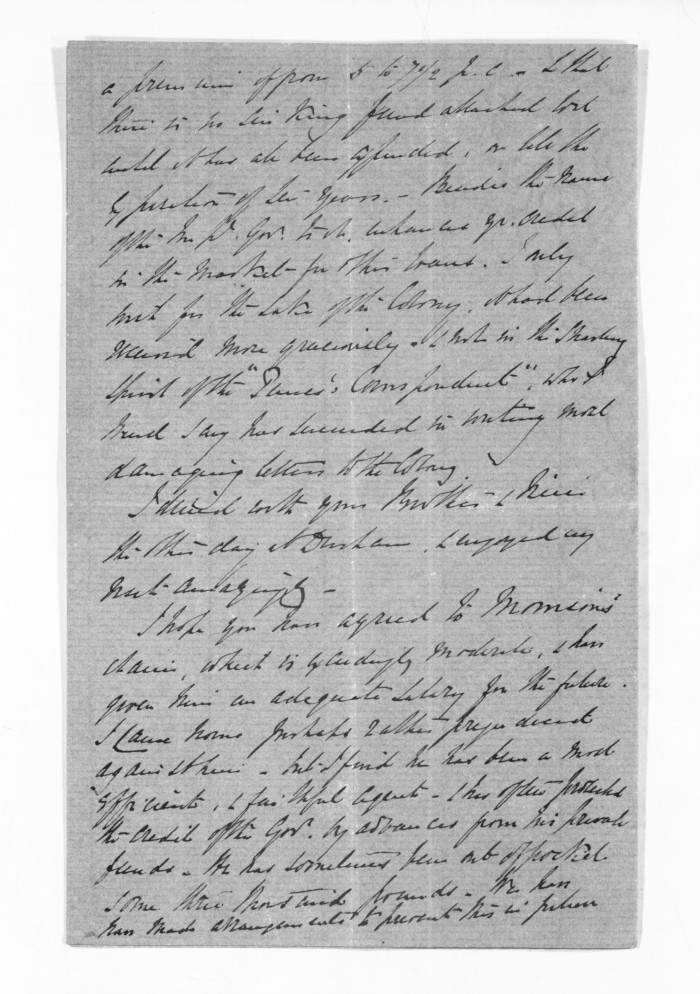 a premium of from 5 to 7½ p. c. - & that
there is no Sinking fund attached to it
until it has all been expended, or till the
expiration of ten years. - Besides the Name
of the Imp. Govt. to it, enhances yr. credit
in the Market for other loans. I only
wish for the sake of the Colony, it had been
received more graciously - & not in the
spirit of the "Times's Correspondent", who I
must say has succeeded in writing most
damaging letters to the Colony.
I dined with your Brother & Niece
the other day at Durham, & enjoyed my
visit amazingly -
I hope you have agreed to Morrison's
claim, which is exceedingly moderate, & have
given him an adequate Salary for the future.
I came home perhaps rather prejudiced
against him - but I find he has been a most
efficient, & faithful agent - & has often protected
the credit of the Govt. by advances from his private
funds - He has sometimes been out of pocket
some three thousand pounds - We have
made arrangements to prevent this in future